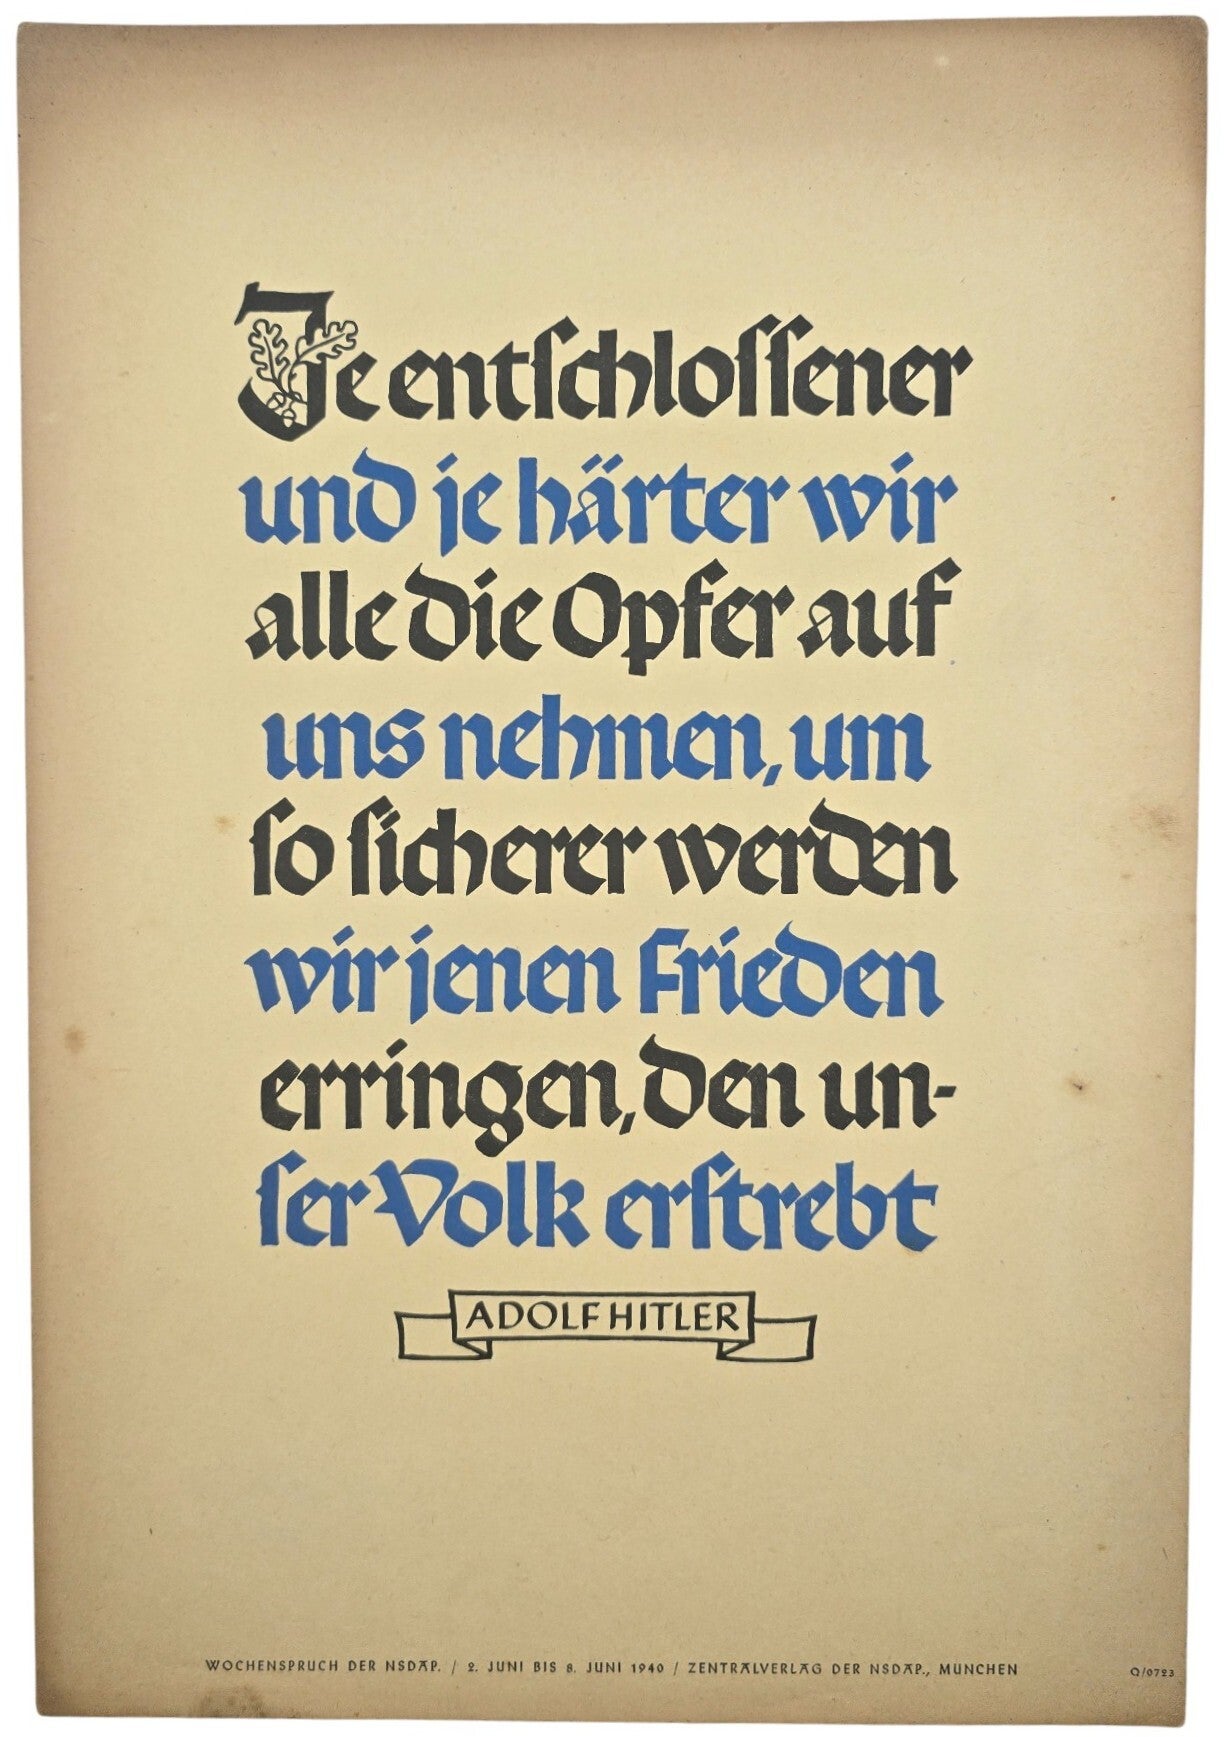 Je entschlossener
und je härter wir
alle die Opfer auf
uns nehmen, um
so sicherer werden
wir jenen Frieden
erringen, den un-
ser Volk erstrebt
ADOLF HITLER
WOCHENSPRUCH DER NSDAP. / 2. JUNI BIS 8. JUNI 1940 / ZENTRALVERLAG DER NSDAP., MÜNCHEN
Q/0723